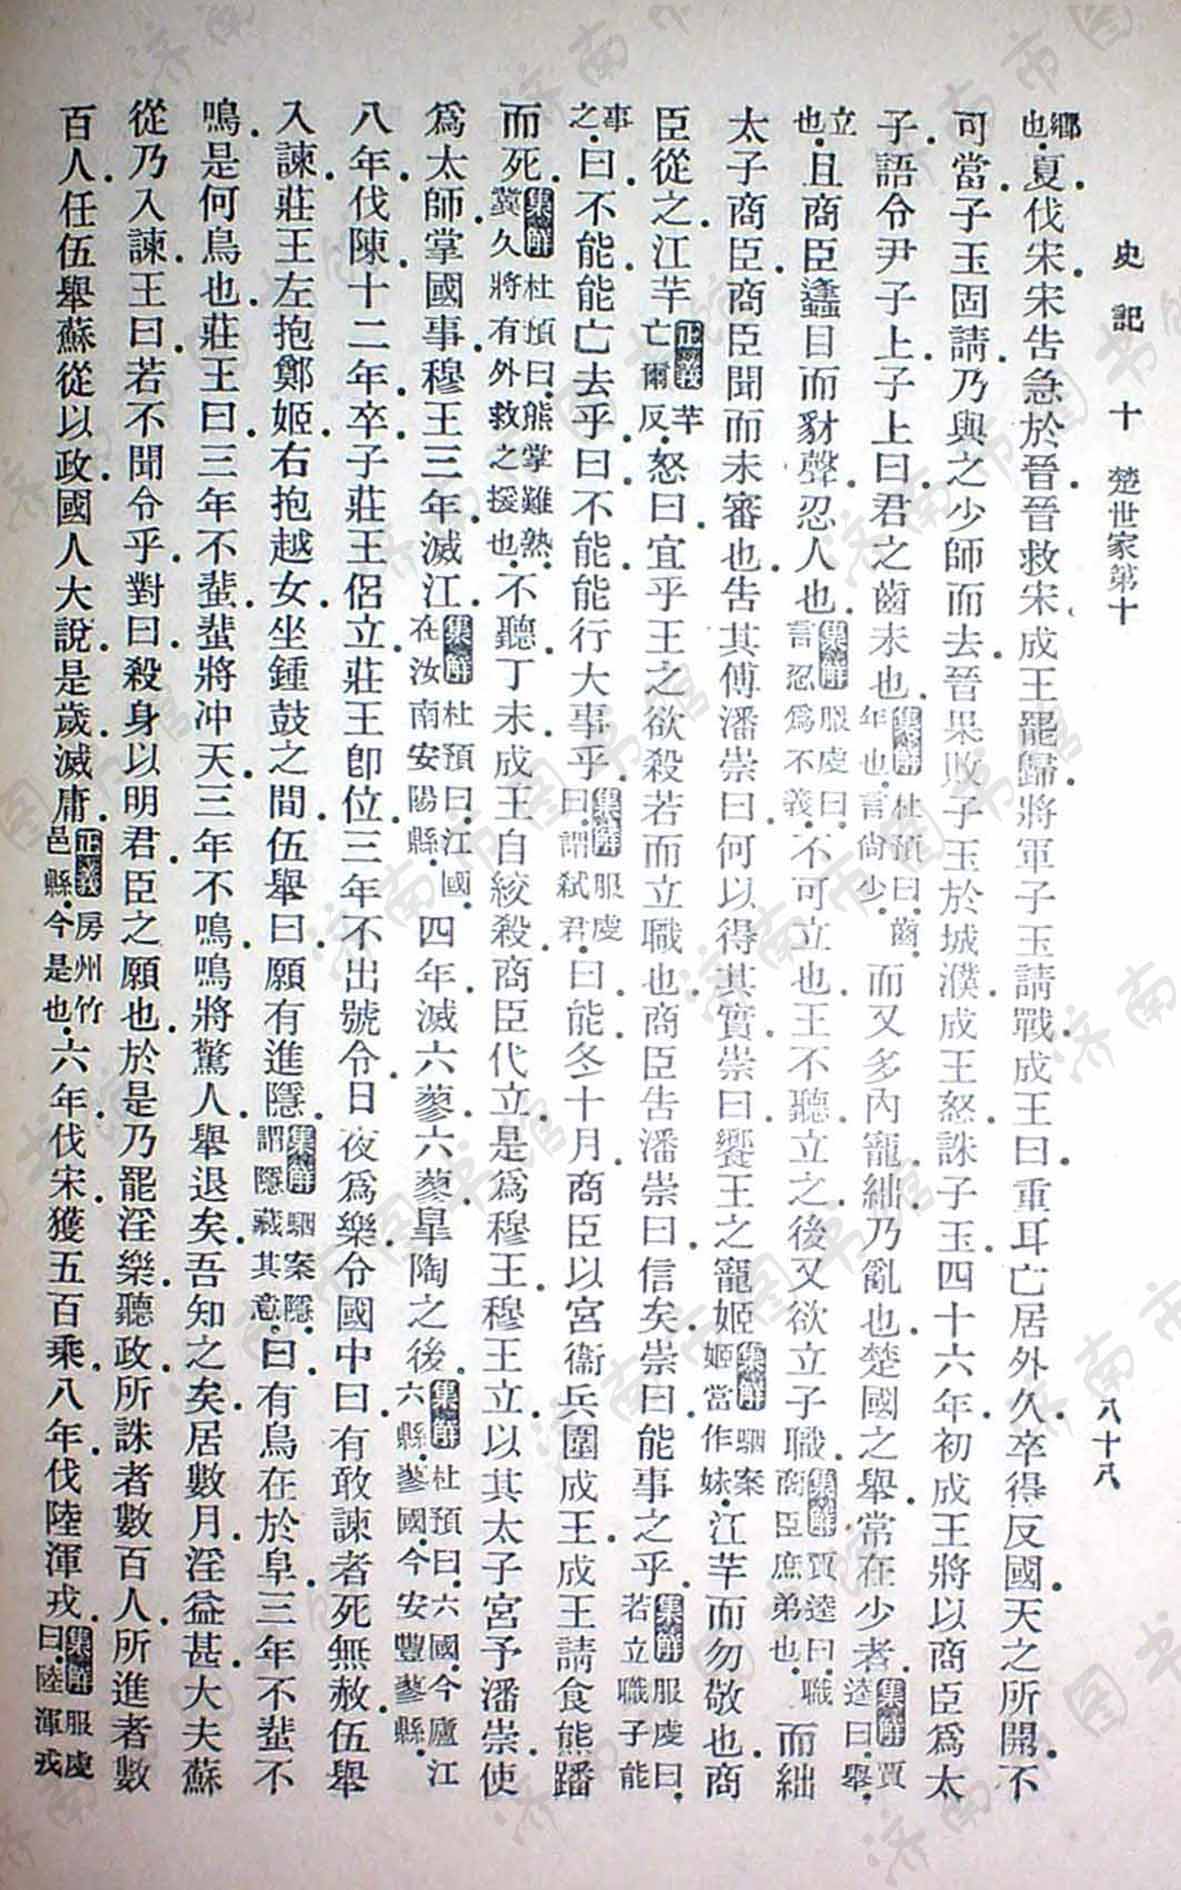 史記十 楚世家第十 八十八
鄉也夏伐宋宋告急於晉晉救宋成王罷歸將軍子玉請戰成王曰重耳亡居外久卒得反國天之所開不
可當子玉固請乃與之少師而去晉果敗子玉於城濮成王怒誅子玉四十六年初成王將以商臣爲太
子語令尹子上子上曰君之齒未也集解杜預曰齒年也言尙少而又多內寵絀乃亂也楚國之舉常在少者集解賈逵曰舉
立也且商臣蠭目而豺聲忍人也集解服虔曰言忍爲不義不可立也王不聽立之後又欲立子職集解賈逵曰職商臣庶弟也而絀
太子商臣商臣聞而未審也告其傅潘崇曰何以得其實崇曰饗王之寵姬集解駰案姬當作妹江芊而勿敬也商
臣從之江芊正義芊亡爾反怒曰宜乎王之欲殺若而立職也商臣告潘崇曰信矣崇曰能事之乎集解服虔曰若立職子能
事之曰不能能亡去乎曰不能能行大事乎集解服虔曰謂弑君曰能冬十月商臣以宮衞兵圍成王成王請食熊蹯
而死集解杜預曰熊掌難熟冀久將有外救之援也不聽丁未成王自絞殺商臣代立是爲穆王穆王立以其太子宮予潘崇使
爲太師掌國事穆王三年滅江集解杜預曰江國在汝南安陽縣四年滅六蓼六蓼皐陶之後集解杜預曰六國今廬江六縣蓼國今安豐蓼縣
八年伐陳十二年卒子莊王侶立莊王卽位三年不出號令日夜爲樂令國中曰有敢諫者死無赦伍舉
入諫莊王左抱鄭姬右抱越女坐鍾鼓之間伍舉曰願有進隱集解駰案隱謂隱藏其意曰有鳥在於阜三年不蜚不
鳴是何鳥也莊王曰三年不蜚蜚將冲天三年不鳴鳴將驚人舉退矣吾知之矣居數月淫益甚大夫蘇
從乃入諫王曰若不聞令乎對曰殺身以明君臣之願也於是乃罷淫樂聽政所誅者數百人所進者數
百人任伍舉蘇從以政國人大說是歲滅庸正義房州竹邑縣今是也六年伐宋獲五百乘八年伐陸渾戎集解服虔曰陸渾戎